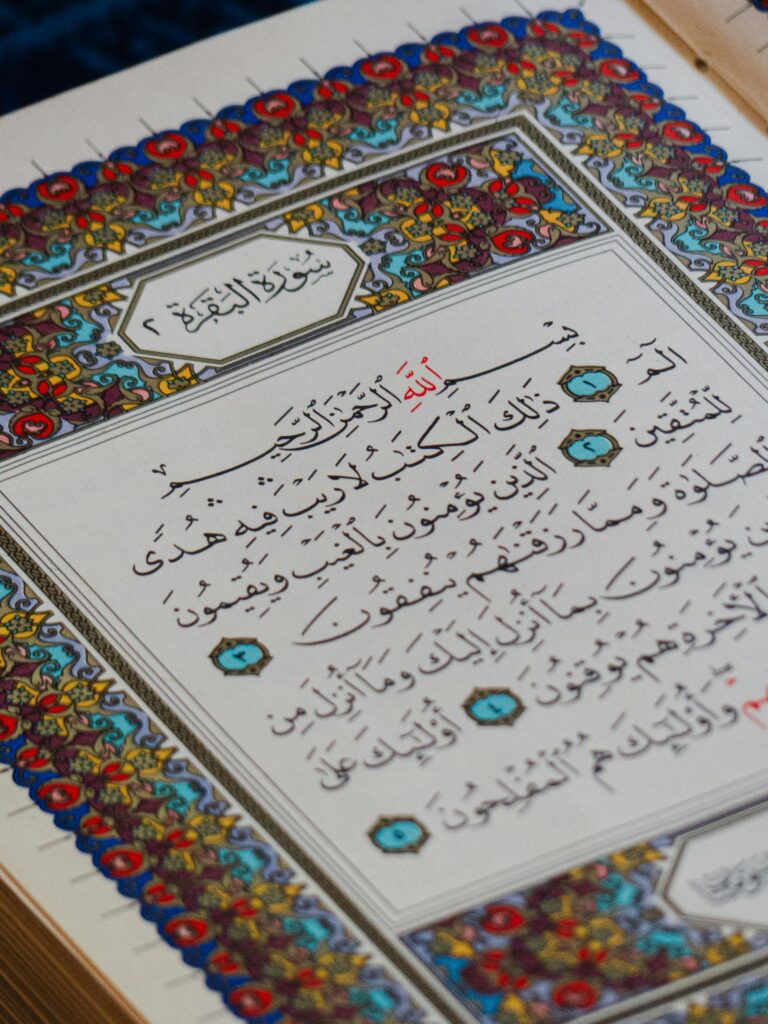 سُورَةُ البَقَرَةِ ٢
بِسْمِ ٱللَّهِ ٱلرَّحْمَٰنِ ٱلرَّحِيمِ
الٓمٓ ١ ذَٰلِكَ ٱلْكِتَٰبُ لَا رَيْبَ فِيهِ هُدًى
لِّلْمُتَّقِينَ ٢ ٱلَّذِينَ يُؤْمِنُونَ بِٱلْغَيْبِ وَيُقِيمُونَ
ٱلصَّلَوٰةَ وَمِمَّا رَزَقْنَٰهُمْ يُنفِقُونَ ٣
يُؤْمِنُونَ بِمَآ أُنزِلَ إِلَيْكَ وَمَآ أُنزِلَ مِن
هُمْ يُوقِنُونَ ٤ أُو۟لَٰٓئِكَ عَلَىٰ
وَأُو۟لَٰٓئِكَ هُمُ ٱلْمُفْلِحُونَ ٥